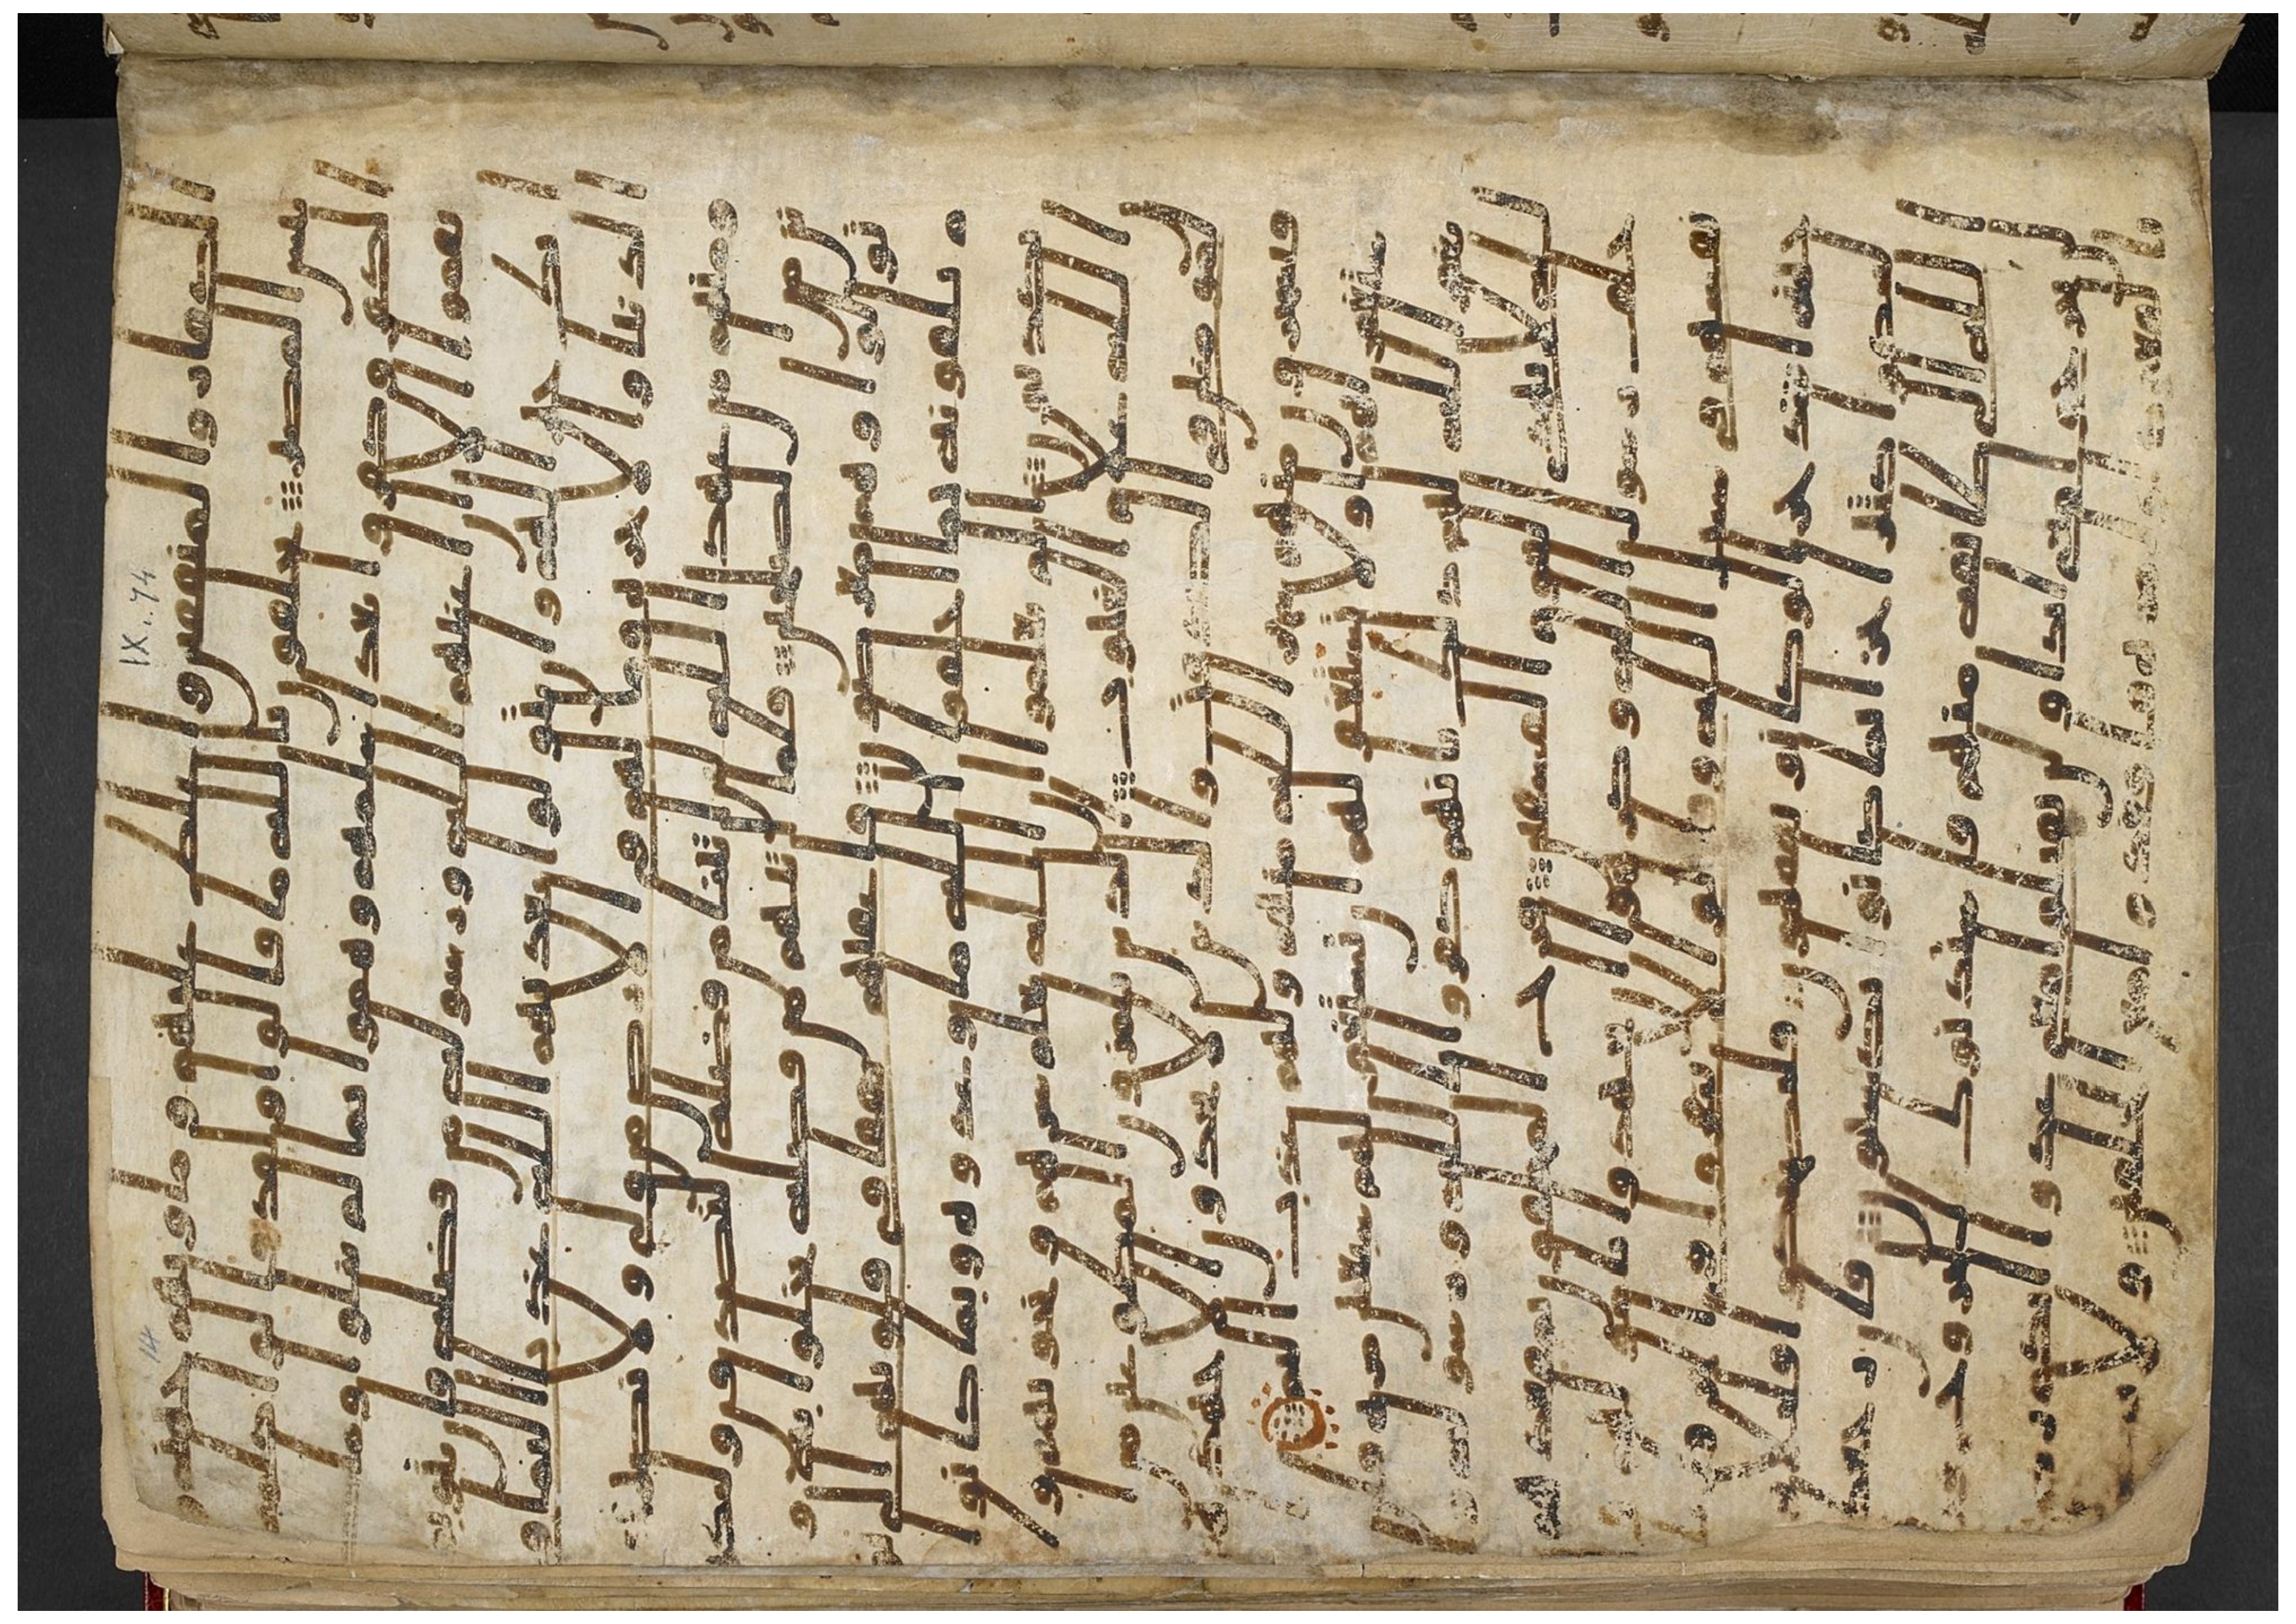 الكفار والمنفقين واغلظ عليهم وماويهم جهنم و
بئس المصير يحلفون بالله ما قالوا ولقد قالوا كلمة
الكفر وكفروا بعد اسلمهم وهموا بما لم ينلوا وما
نقموا الا ان اغنيهم الله ورسوله من فضله فان يتوبو
ا يك خيرا لهم وان يتولوا يعذبهم الله عذابا اليما فى
الدنيا والاخرة وما لهم فى الارض من ولى ولا نصير
ومنهم من عهد الله لئن اتينا من فضله لنصدقن ولنكو
نن من الصلحين فلما اتيهم من فضله بخلوا به و
تولوا وهم معرضون فاعقبهم نفاقا فى قلوبهم الى
يوم يلقونه بما اخلفوا الله ما وعدوه وبما كانوا
يكذبون الم يعلموا ان الله يعلم سرهم ونجويهم و
ان الله علم الغيوب الذين يلمزون المطوعين من ا
لمومنين فى الصدقت والذين لا يجدون الا جهدهم
فيسخرون منهم سخر الله منهم ولهم عذاب اليم
استغفر لهم او لا تستغفر لهم ان تستغفر لهم سبعين مرة فلن
يغفر الله لهم ذلك بانهم كفروا بالله ورسوله و
الله لا يهدى القوم الفسقين فرح المخلفون بمقعدهم
خلف رسول الله وكرهوا ان يجهدوا باموالهم و
انفسهم فى سبيل الله وقالوا لا تنفروا فى الحر قل
نار جهنم اشد حرا لو كانوا يفقهون فليضحكوا قليلا و
ليبكوا كثيرا جزا بما كانوا يكسبون فان رجعك
الله الى طئفة منهم فاستذنوك للخروج فقل
لن تخرجوا معى ابدا ولن تقتلوا معى عدوا انكم رضيتم
بالقعود اول مرة فاقعدوا مع الخلفين ولا
IX. 74
14